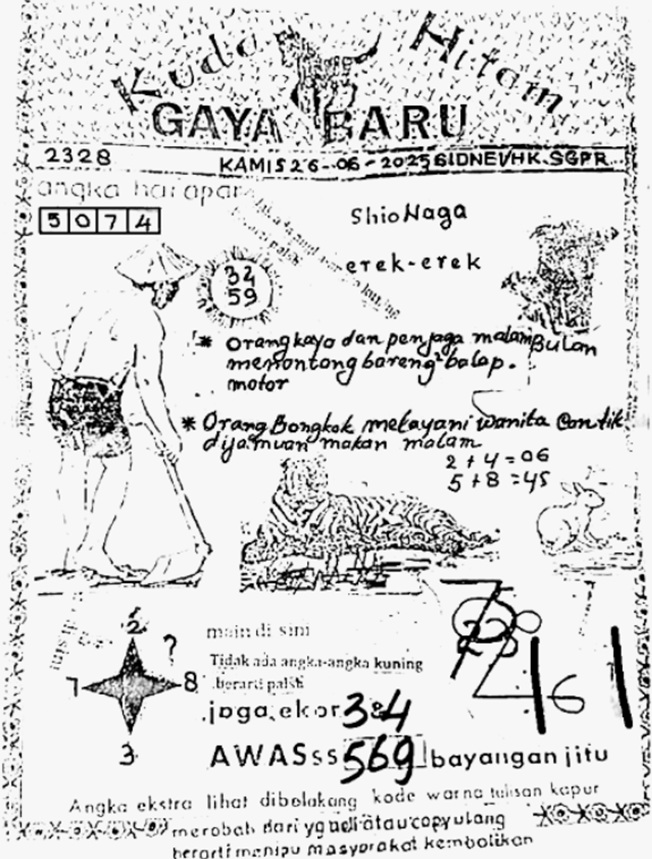 Kuda Hitam
GAYA BARU
2328
KAMIS 26-06-2025 SIDNEY/HK.SGPR
angka harapan
5 0 7 4
Shio Naga
erek-erek
34
59
* Orang kaya dan penjaga malam Bulan
menontong bareng² balap.
motor
* Orang Bongkok melayani wanita Cantik
dijamuan makan malam
2 + 4 = 06
5 + 8 = 45
2
?
7
8
3
main di sini
Tidak ada angka-angka kuning
berarti palsu
jaga ekor 3 & 4
6
AWASss 569 bayangan jitu
Angka ekstra lihat dibelakang kode warna tulisan kapur
merobah dari yg asli atau copy ulang
berarti menipu masyarakat kembalikan